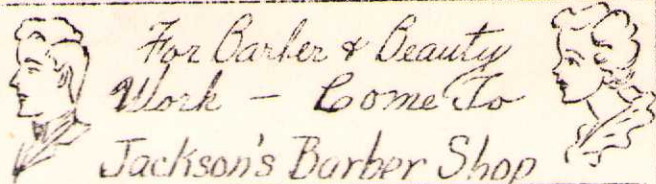 For Barber & Beauty
Work – Come To
Jackson's Barber Shop